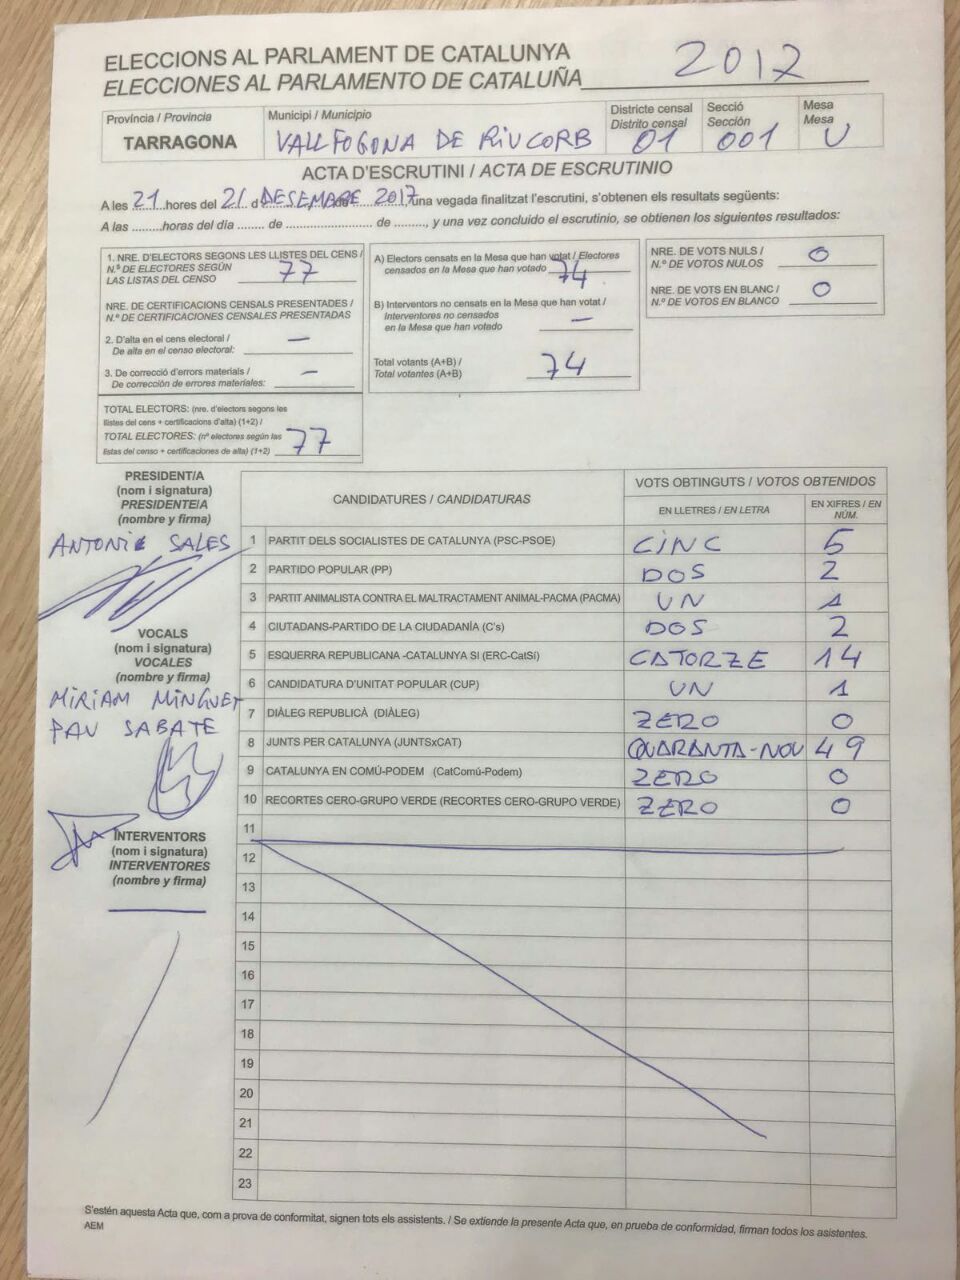 ELECCIONS AL PARLAMENT DE CATALUNYA
ELECCIONES AL PARLAMENTO DE CATALUÑA 2017
Província / Provincia
TARRAGONA
Municipi / Municipio
VALLFOGONA DE RIUCORB
Districte censal
Distrito censal
01
Secció
Sección
001
Mesa
Mesa
U
ACTA D'ESCRUTINI / ACTA DE ESCRUTINIO
A les 21 hores del 21 d DESEMBRE 2017, una vegada finalitzat l'escrutini, s'obtenen els resultats següents:
A las .........horas del día ....... de .................... de ........, y una vez concluido el escrutinio, se obtienen los siguientes resultados:
1. NRE. D'ELECTORS SEGONS LES LLISTES DEL CENS /
N.º DE ELECTORES SEGÚN
LAS LISTAS DEL CENSO 77
NRE. DE CERTIFICACIONS CENSALS PRESENTADES /
N.º DE CERTIFICACIONES CENSALES PRESENTADAS
2. D'alta en el cens electoral /
De alta en el censo electoral: —
3. De correcció d'errors materials /
De corrección de errores materiales: —
TOTAL ELECTORS: (nre. d'electors segons les
llistes del cens + certificacions d'alta) (1+2) /
TOTAL ELECTORES: (nº electores según las
listas del censo + certificaciones de alta) (1+2) 77
A) Electors censats en la Mesa que han votat / Electores
censados en la Mesa que han votado 74
B) Interventors no censats en la Mesa que han votat /
Interventores no censados
en la Mesa que han votado —
Total votants (A+B) /
Total votantes (A+B) 74
NRE. DE VOTS NULS /
N.º DE VOTOS NULOS 0
NRE. DE VOTS EN BLANC /
N.º DE VOTOS EN BLANCO 0
PRESIDENT/A
(nom i signatura)
PRESIDENTE/A
(nombre y firma)
ANTONIE SALES
VOCALS
(nom i signatura)
VOCALES
(nombre y firma)
MIRIAM MINGUET
PAU SABATE
INTERVENTORS
(nom i signatura)
INTERVENTORES
(nombre y firma)
CANDIDATURES / CANDIDATURAS
VOTS OBTINGUTS / VOTOS OBTENIDOS
EN LLETRES / EN LETRA
EN XIFRES / EN NÚM.
1 PARTIT DELS SOCIALISTES DE CATALUNYA (PSC-PSOE) CINC 5
2 PARTIDO POPULAR (PP) DOS 2
3 PARTIT ANIMALISTA CONTRA EL MALTRACTAMENT ANIMAL-PACMA (PACMA) UN 1
4 CIUTADANS-PARTIDO DE LA CIUDADANÍA (C's) DOS 2
5 ESQUERRA REPUBLICANA -CATALUNYA SI (ERC-CatSí) CATORZE 14
6 CANDIDATURA D'UNITAT POPULAR (CUP) UN 1
7 DIÀLEG REPUBLICÀ (DIÀLEG) ZERO 0
8 JUNTS PER CATALUNYA (JUNTSxCAT) QUARANTA-NOU 49
9 CATALUNYA EN COMÚ-PODEM (CatComú-Podem) ZERO 0
10 RECORTES CERO-GRUPO VERDE (RECORTES CERO-GRUPO VERDE) ZERO 0
11
12
13
14
15
16
17
18
19
20
21
22
23
S'estén aquesta Acta que, com a prova de conformitat, signen tots els assistents. / Se extiende la presente Acta que, en prueba de conformidad, firman todos los asistentes.
AEM